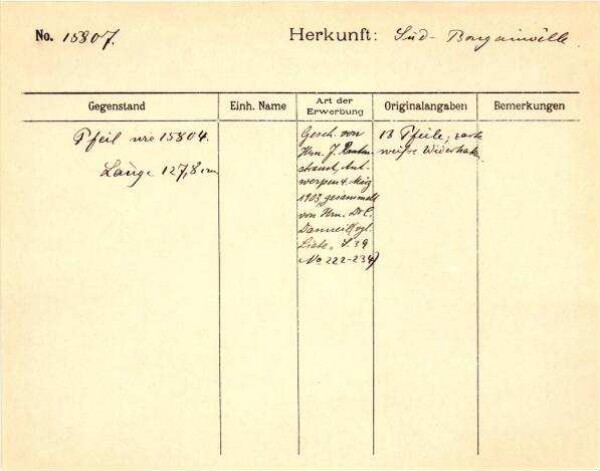 No. 15807. Herkunft: Süd- Bougainville.
Gegenstand Einh. Name Art der Erwerbung Originalangaben Bemerkungen
Pfeil wie 15804.
Länge 127,8 cm
Gesch. von
Hrn. J.
werpen 4. März
1903, gesammelt
von Hrn. Dr. C.
Danneil (vgl.
Liste, S. 39
No 222-234)
13 Pfeile,
weiße Widerhaken